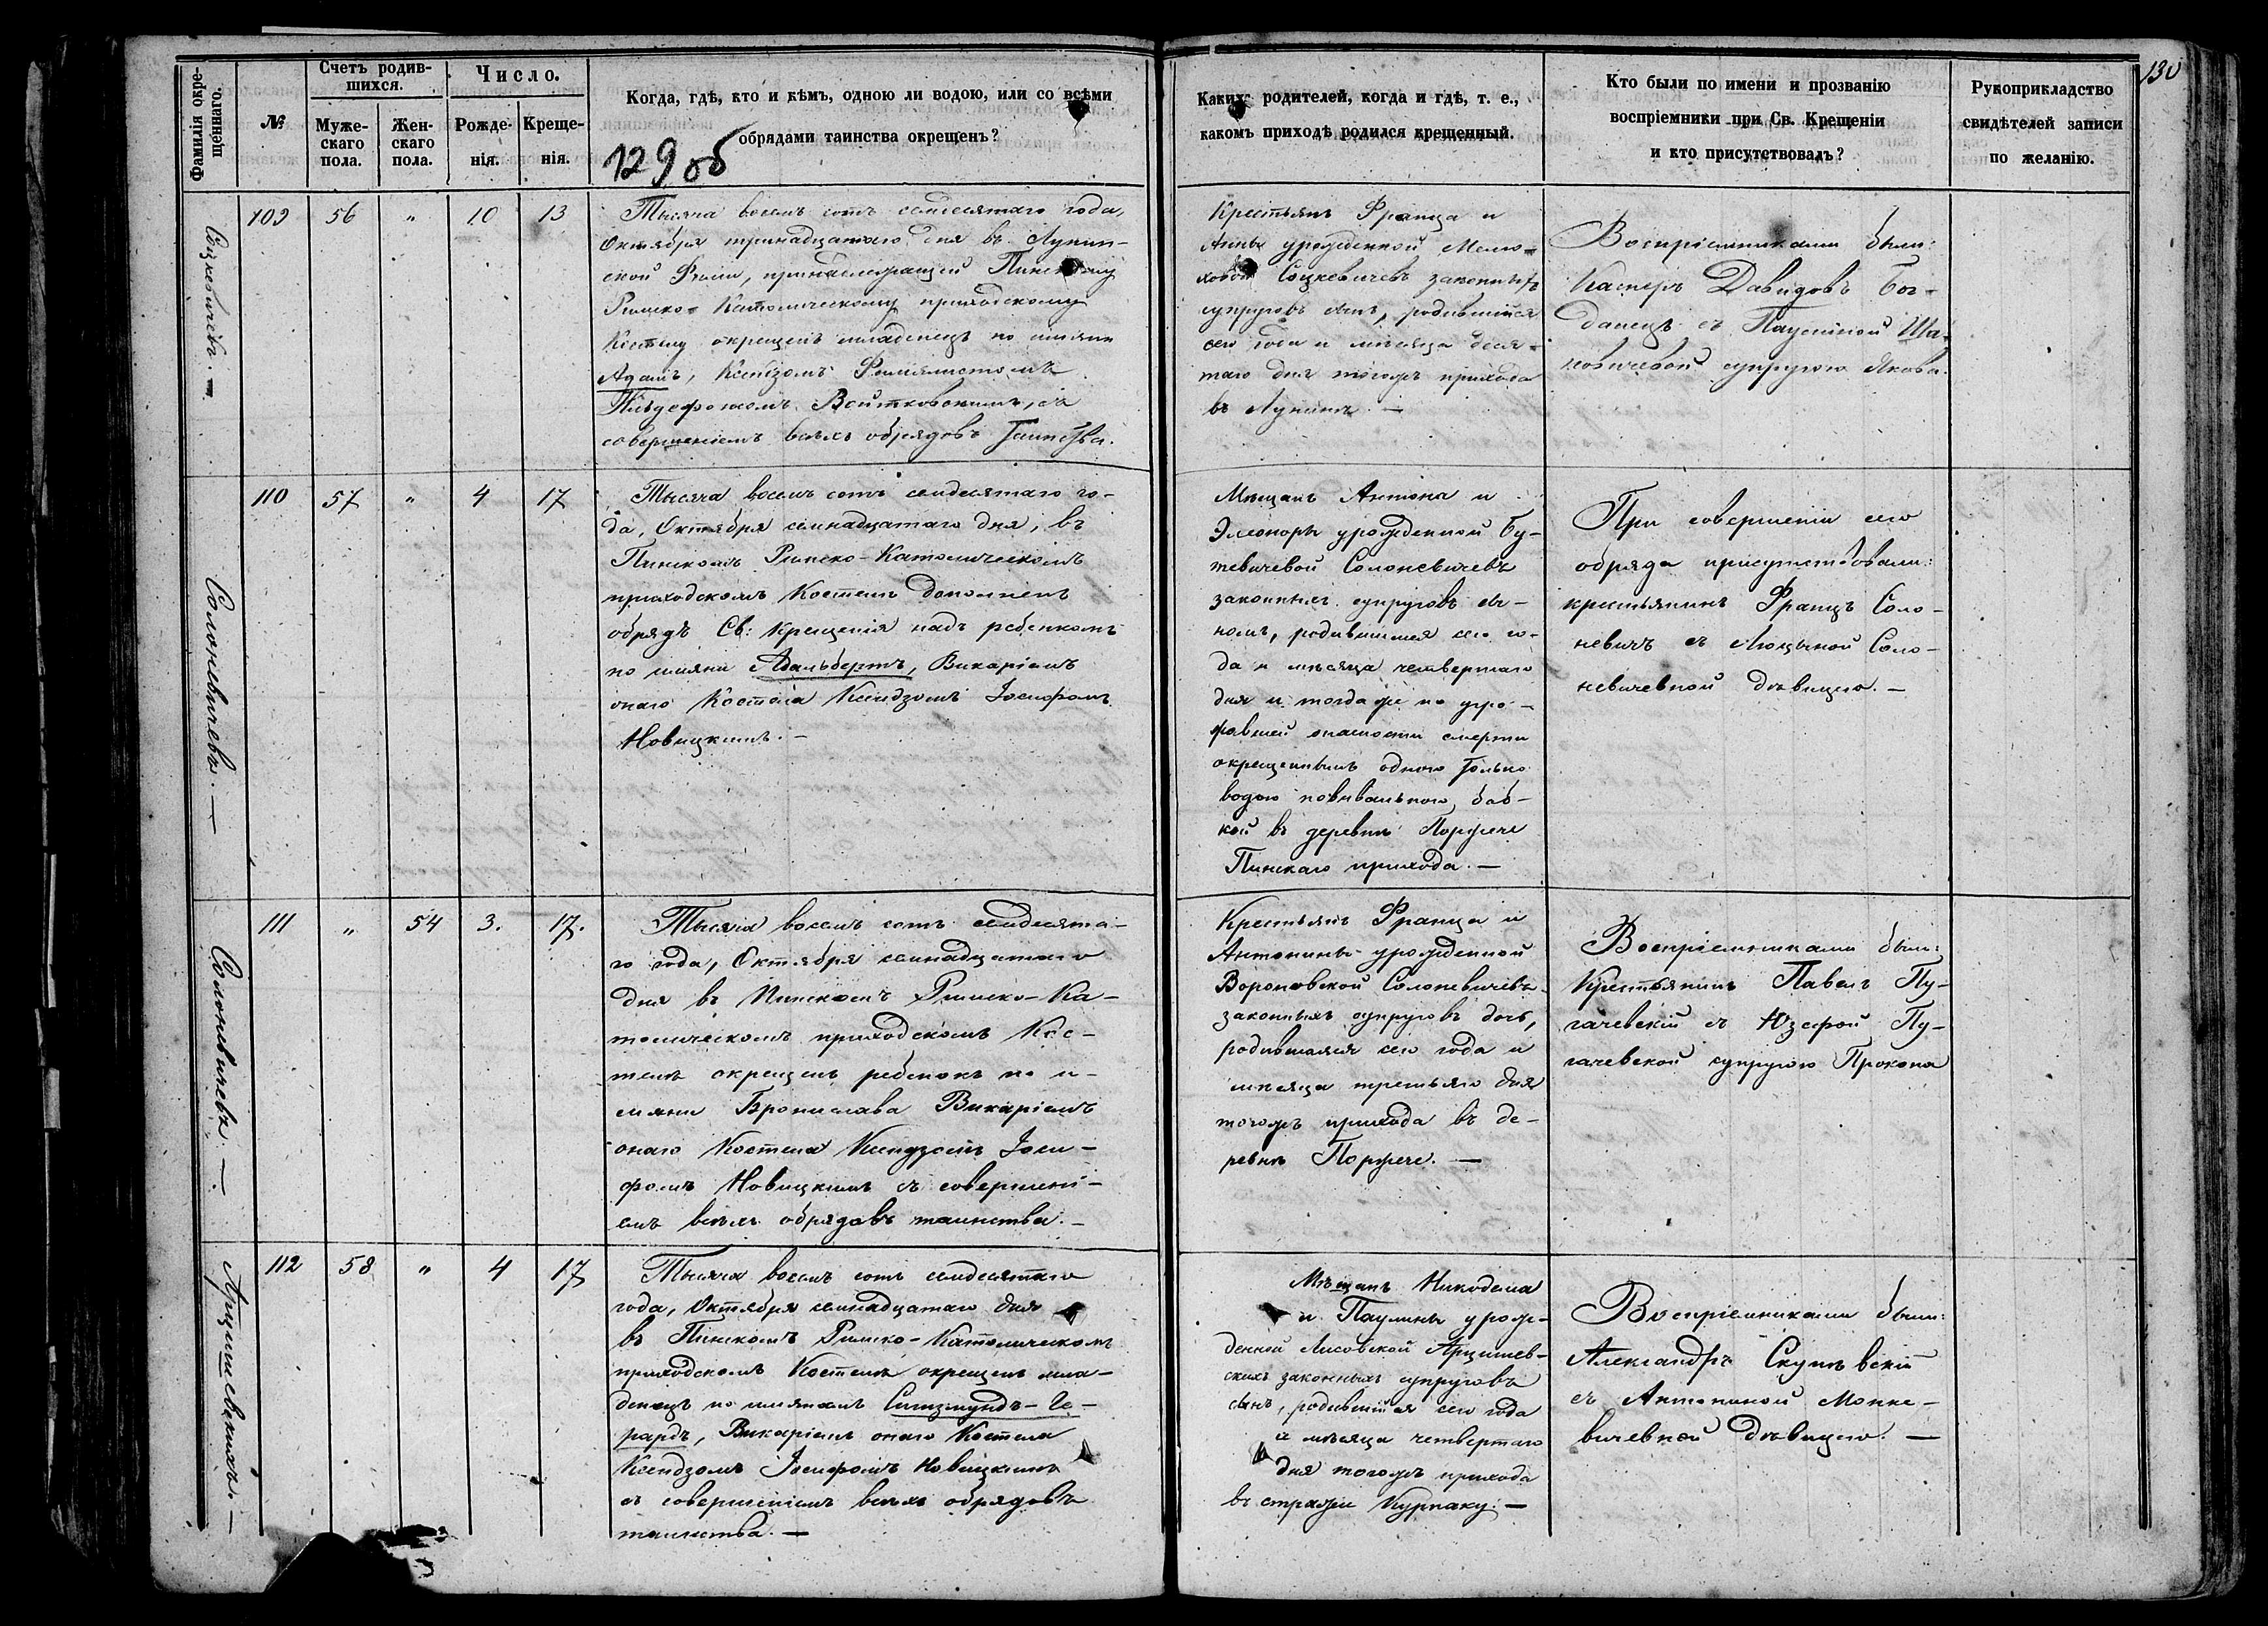 130
Фамилія окре-
щеннаго.
№
Счетъ родив-
шихся.
Муже-
скаго
пола.
Жен-
скаго
пола.
Число.
Рожде-
нія.
Креще-
нія.
Когда, гдѣ, кто и кѣмъ, одною ли водою, или со всѣми
обрядами таинства окрещенъ?
129 об
Какихъ родителей, когда и гдѣ, т. е.,
какомъ приходѣ родился крещенный.
Кто были по имени и прозванію
воспріемники при Св. Крещеніи
и кто присутствовалъ?
Рукоприкладство
свидѣтелей записи
по желанію.
Соцкевичевъ. —
109 56 " 10 13
Тысяча восемь сотъ семдесятаго года,
Октября тринадцатаго дня въ Лунин-
ской Филіи, принадлежащей Пинскому
Римско-Католическому приходскому
Костелу окрещенъ младенецъ по имяни
Адамъ, Ксендзомъ
Войтковскимъ, съ
совершеніемъ всѣхъ обрядовъ Таинства.
Крестьянъ Франца и
Анны урожденной Мело-
ховой Соцкевичевъ законныхъ
супруговъ сынъ, родившійся
сего года и мѣсяца деся-
таго дня тогожъ прихода
въ Лунинѣ. —
Воспріемниками были:
Касперъ Давидовъ Бог-
данецъ съ Паулиной Ша-
ковичевой супругою Якова.
Солоневичевъ. —
110 57 " 4 17
Тысяча восемь сотъ семдесятаго го-
да, Октября семнадцатаго дня, въ
Пинскомъ Римско-Католическомъ
приходскомъ Костелѣ дополненъ
обрядъ Св: Крещенія надъ ребенкомъ
по имяни Адальбертъ, Викаріемъ
онаго Костела Ксендзомъ Іосифомъ
Новицкимъ. —
Мѣщанъ Антона и
Элеоноры урожденной Бу-
тевичевой Солоневичевъ
законныхъ супруговъ сы-
номъ, родившимся сего го-
да и мѣсяца четвертаго
дня и тогда же по угро-
жавшей опасности смерти
окрещеннымъ одною только
водою повивальною баб-
кой въ деревнѣ Поречье
Пинскаго прихода. —
При совершеніи сего
обряда присутствовали:
крестьянинъ Францъ Соло-
невичъ съ Люцыной Соло-
невичевной дѣвицею. —
Солоневичевъ. —
111 " 54 3. 17.
Тысяча восемь сотъ семдесята-
го года, Октября семнадцатаго
дня въ Пинскомъ Римско-Ка-
толическомъ приходскомъ Кос-
телѣ окрещенъ ребенокъ по и-
мяни Бронислава Викаріемъ
онаго Костела Ксендзомъ Іоси-
фомъ Новицкимъ съ совершені-
емъ всѣхъ обрядовъ таинства. —
Крестьянъ Франца и
Антонины урожденной
Вороновской Солоневичевъ
законныхъ супруговъ дочь,
родившаяся сего года и
мѣсяца третьяго дня
тогожъ прихода въ де-
ревнѣ Поречье. —
Воспріемниками были:
Крестьянинъ Павелъ Пу-
гачевскій съ Юзефой Пу-
гачевской супругою Прокопа
Арцишевскихъ. —
112 58 " 4 17
Тысяча восемь сотъ семдесятаго
года, Октября семнадцатаго дня
въ Пинскомъ Римско-Католическомъ
приходскомъ Костелѣ окрещенъ мла-
денецъ по имянамъ Сигизмундъ-Ге-
рардъ, Викаріемъ онаго Костела
Ксендзомъ Іосифомъ Новицкимъ
съ совершеніемъ всѣхъ обрядовъ
таинства. —
Мѣщанъ Никодема
и Паулины урож-
денной Лисовской Арцишев-
скихъ законныхъ супруговъ
сынъ, родившійся сего года
и мѣсяца четвертаго
дня тогожъ прихода
въ стражи Курпаку. —
Воспріемниками были:
Александръ
съ Антониной
вичевной дѣвицею. —